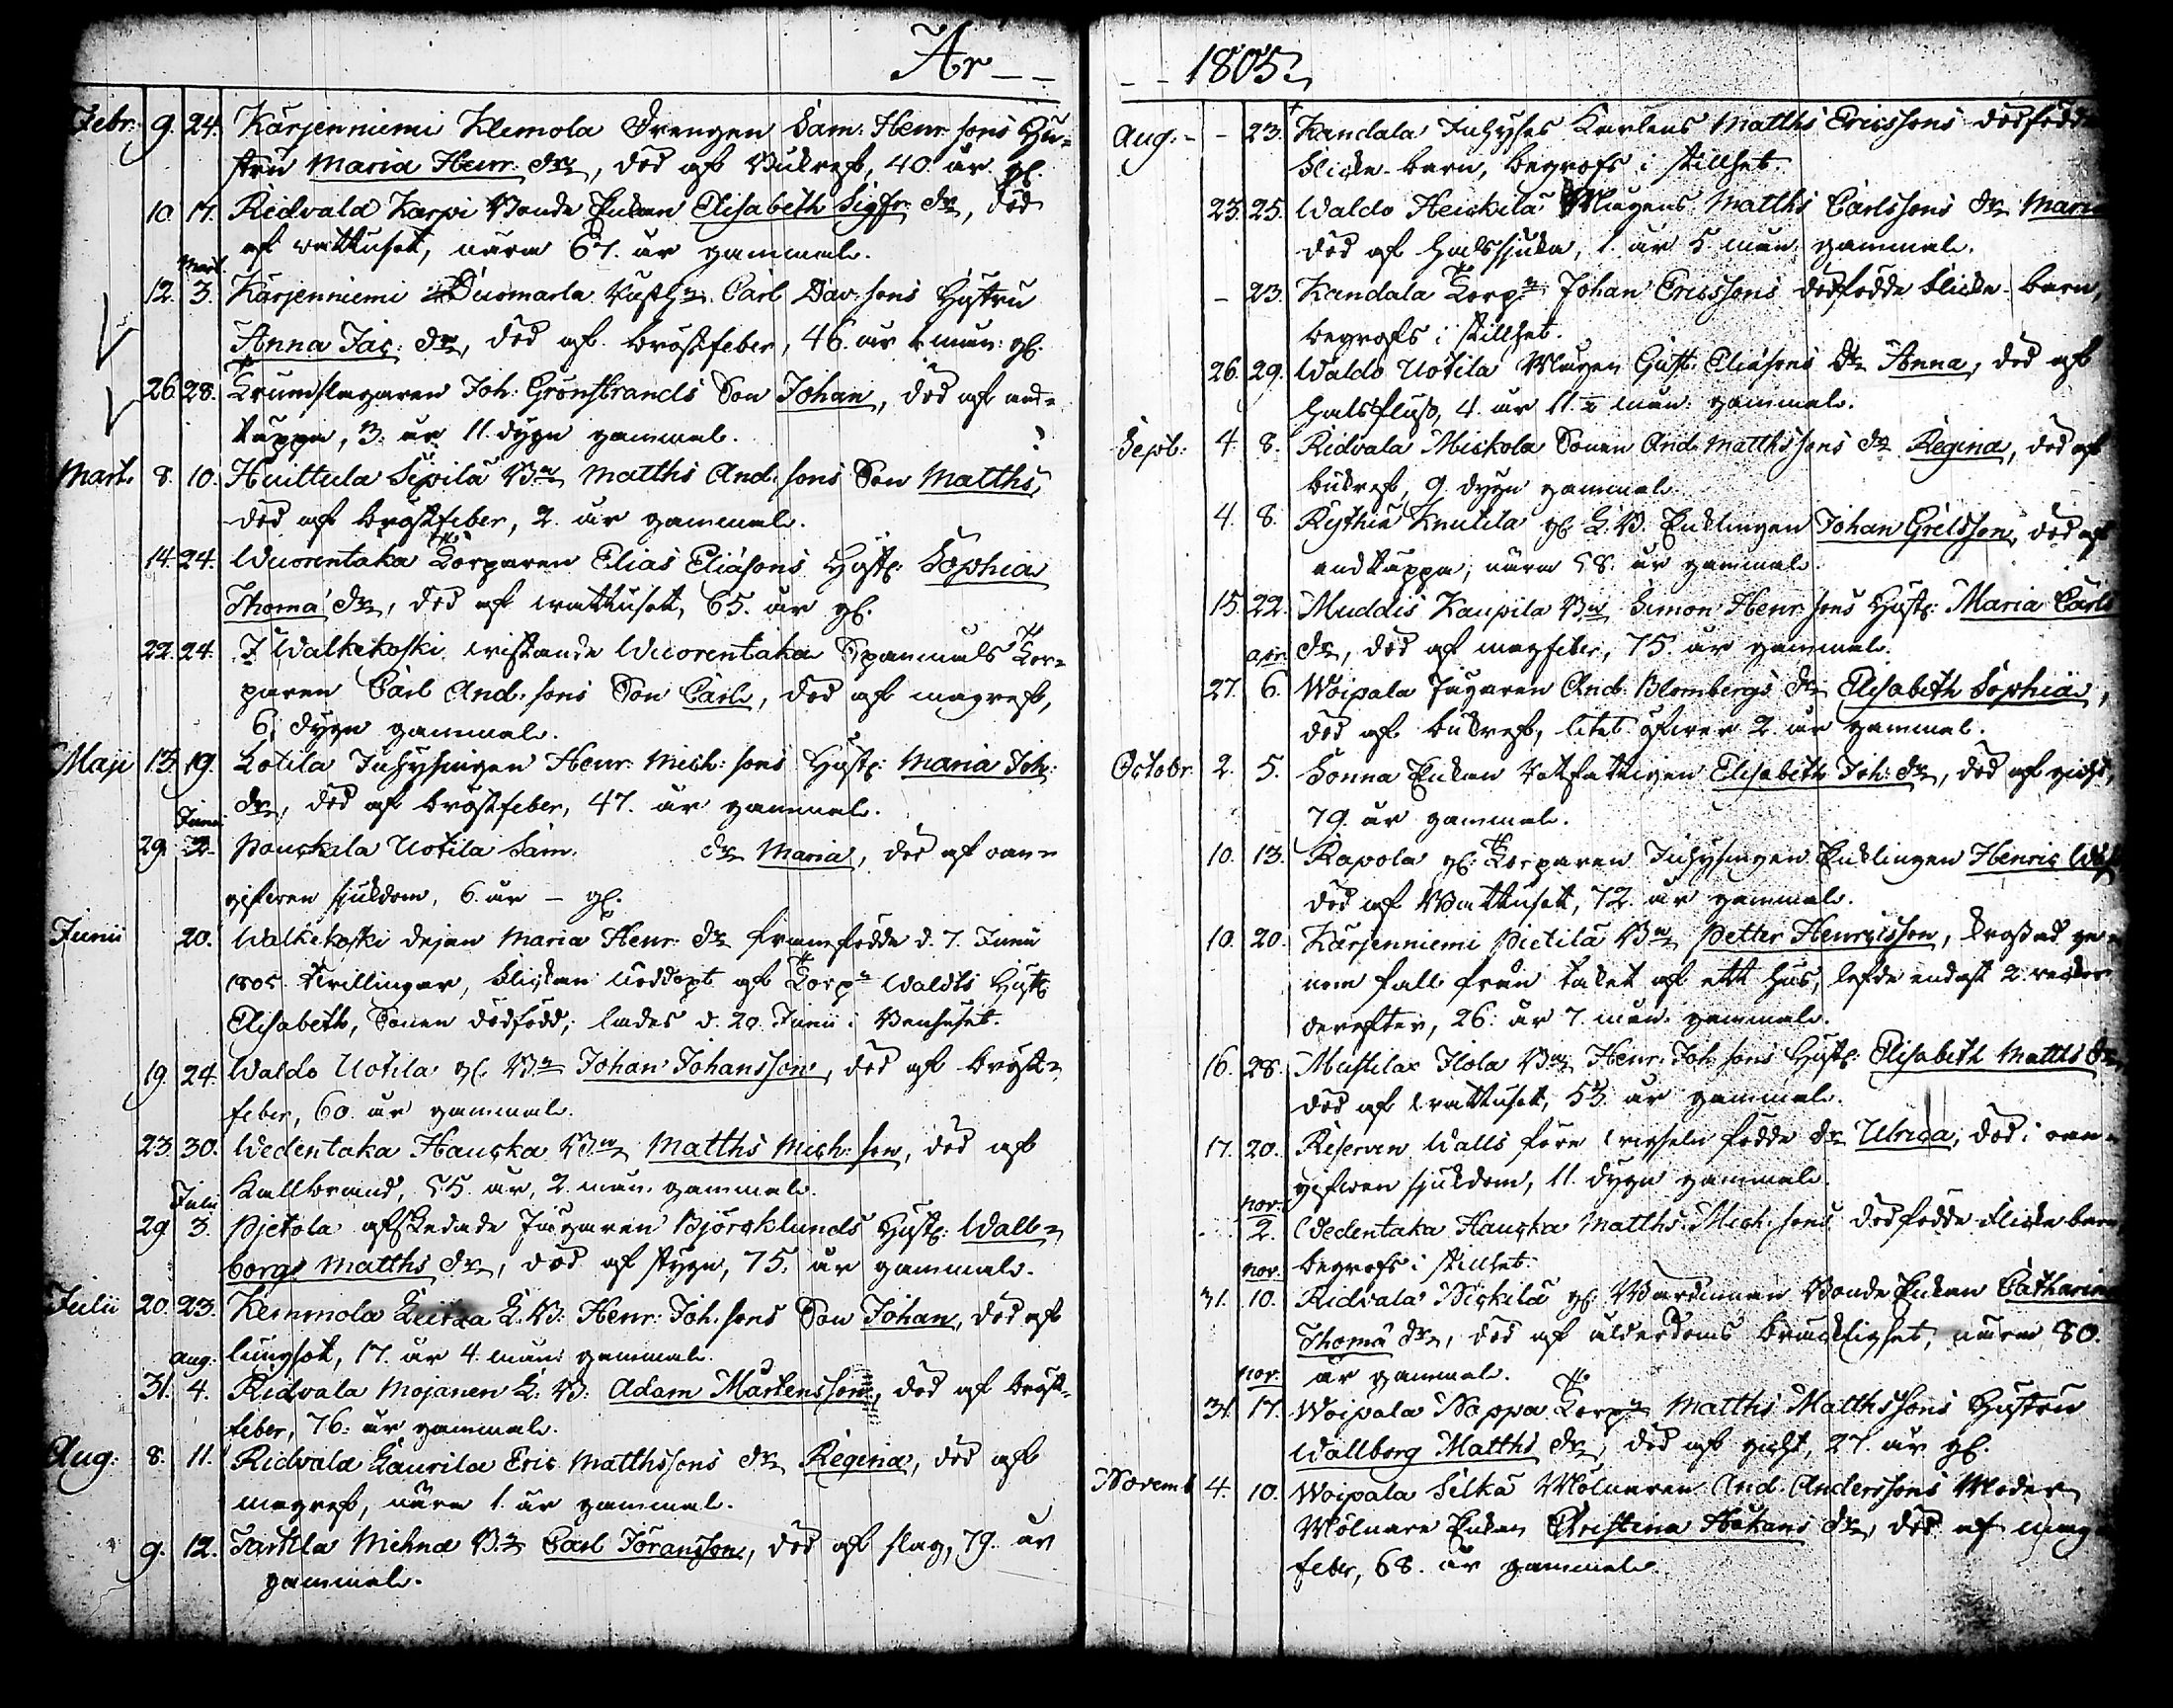 År – –
Febr. 9. 24. Kärjenniemi Klemola Drengen Sam: Henr. sons Hu=
stru Maria Henr: dr, död af Bukref, 40. år gl.
10. 17. Ridvala Karpi Bonde Enkan Elisabeth Sigfr: dr, död
af wattusot, nära 67. år gammal.
Mart.
12. 3. Kärjenniemi Duomarla Carl Dav: sons Hustru
Anna Jac: dr, död af bröstfeber, 46. år mån: gl.
26. 28. Trumslagaren Joh: Grönstrands Son Johan, död af and=
täppa, 3. år 11. dygn gammal.
Mart. 8. 10. Huittula Sipilä Bn Matths And: sons Son Matths,
död af bröstfeber, 2. år gammal.
14. 24. Wuorentaka Torparen Elias Eliæsons Hustr: Sophia
Thomæ dr, död af wattusot, 65. år gl.
22. 24. I Walkekoski wistande Wuorentaka Spannuls Tor=
paren Carl And: sons Son Carl, död af magref,
6. dygn gammal.
Maji 13. 19. Lotila Inhysingen Henr: Mich: sons Hustr: Maria Joh:
dr, död af bröstfeber, 47. år gammal.
Junii
29. 2. Pouckala Uotila Sam: dr Maria, död af oan=
gifwen sjukdom, 6. år – gl.
Junii 20. Walkekoski dejan Maria Henr: dr framfödde d. 7. Junii
1805 twillingar, flickan nöddöpt af Torpn Waldts Hustr
Elisabeth, Sonen dödfödd; lades d. 20 Junii i Benhuset.
19. 24. Waldo Uotila gl. Bn Johan Johansson, död af bröst=
feber, 60. år gammal.
23. 30. Wedentaka Haucka Bn Matths Mich: son, död af
Kallbrand, 55. år, 2. mån. gammal.
Julii
29. 3. Pjetola afskedade Jägaren Björcklunds Hustr: Wall=
borg Matths dr, död af stygn, 75. år gammal.
Julii 20. 23. Kemmola L: B: Henr: Joh. sons Son Johan, död af
lungsot, 17. år 4. mån: gammal.
Aug.
31. 4. Ridvala Mojanen L: B: Adam Mårtensson, död af bröst=
feber, 76. år gammal.
Aug: 8. 11. Ridvala Laurila Eric Matthssons dr Regina, död af
magref, nära 1. år gammal.
9. 12. Jarttla Michna Bn Carl Jöransson, död af slag, 79. år
gammal.
– – 1805.
Aug. – – 23. Kandala Inhyses Karlens Matths Ericssons dödfödde
flicke-barn, begrofs i stillhet.
23. 25. Waldo Heickilä Mågens Matths Carlssons dr Maria
död af halssjuka, 1. år 5. mån. gammal.
– 23. Kandala Torpn Johan Ericssons dödfödde flicke-barn,
begrofs i stillhet.
26. 29. Waldo Uotila Mågen Gust. Eliæsons dr Anna, död af
halsfluss, 4. år 11.½ mån: gammal.
Sept: 4. 8. Ridvala Mickola Sonen And. Matthssons dr Regina, död af
bukref, 9. dygn gammal.
4. 8. Rythiä Knutila gl. L: B. Enklingen Johan Grelsson, död af
andtäppa, nära 58. år gammal.
15. 22. Muddis Kaupila Bn Simon Henr: sons Hustr: Maria Carls
dr, död af magfeber, 75. år gammal.
27. 6. Woipala Jägaren And: Blombergs dr Elisabeth Sophia,
död af bukref, litet öfwer 2. år gammal.
Octobr. 2. 5. Sonna Enkan Rotfattigen Elisabeth Joh: dr, död af gicht,
79. år gammal.
10. 13. Rapola gl: Torparen Inhysingen Enklingen Henric
död af Wattusot, 72. år gammal.
10. 20. Kärjenniemi Pietilä Bn Petter Henricsson, krossad ge=
nom fall från taket af ett hus, lefde endast 2. weckor
derefter, 26. år 7. mån. gammal.
16. 28. Mustila Ilola Bn Henr: Joh. sons Hustr: Elisabeth Matths dr
död af wattusot, 53. år gammal.
17. 20. Reserven Walls före wigseln födde dr Ulrica, död i oan=
gifwen sjukdom, 11. dygn gammal.
nov.
2. Wedentaka Haucka Matths Mich: sons dödfödde flicke barn
begrofs i stillhet.
nov.
31. 10. Ridvala Nickilä gl. Bonde Enkan Catharina
Thomæ dr, död af ålderdoms bräcklighet, nära 80.
år gammal.
nov.
31. 17. Woipala Nappa Torpn Matths Matthssons Hustru
Wallborg Matths dr, död af gicht, 27. år gl.
Novemb 4. 10. Woipala Silkä Mölnaren And. Anderssons Moder
Mölnare Enkan Christina Håkans dr, död af mag=
feber, 68. år gammal.